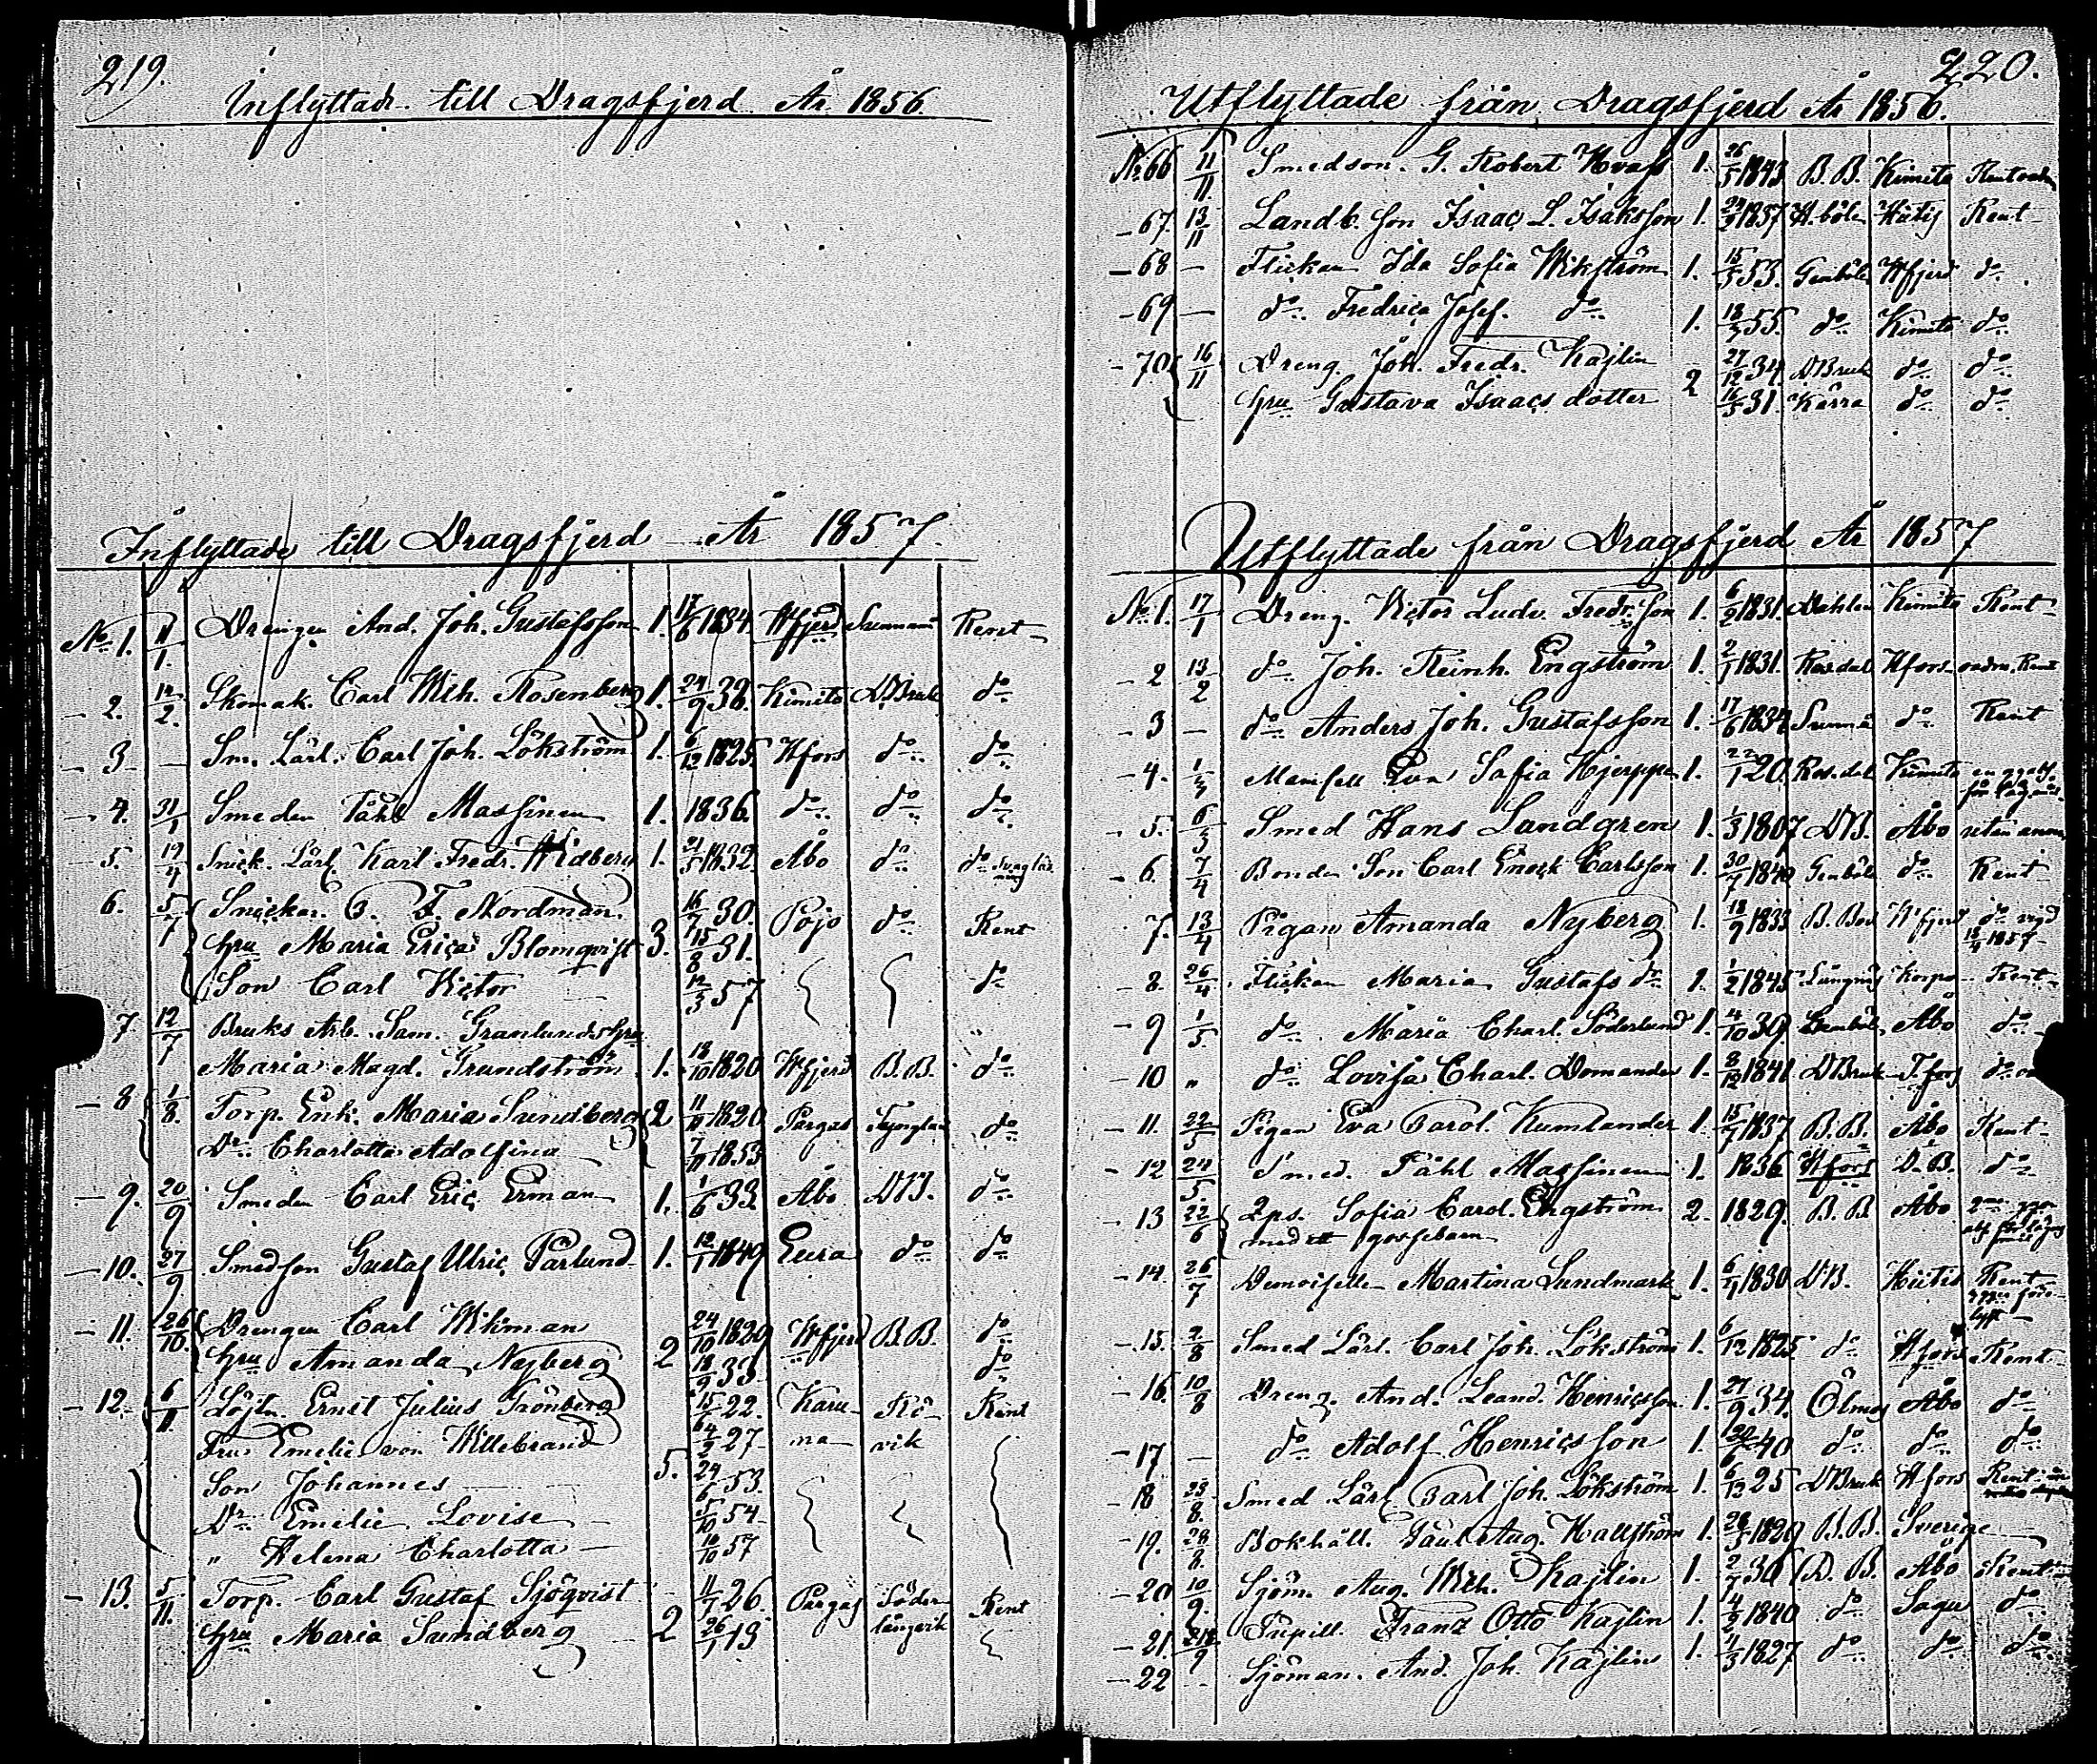 219.
Inflyttade till Dragsfjerd År 1856.
Inflyttade till Dragsfjerd År 1857.
No 1. 11/1. Drengen And. Joh. Gustafsson 1. 17/6 1834 Hfjerd Sunnanå Rent
- 2. 14/2. Skomak. Carl Wilh. Rosenberg 1. 24/9 38. Kimito DBruk do
- 3 - Sm. Lärl. Carl Joh. Lökström 1. 6/12 1825. Hfors do do
- 4. 31/1 Smeden Påhl Massinen 1. 1836. do do do
- 5. 19/4 Snick. Lärl. Karl Fredr. Widberg 1. 21/5 1832 Åbo do do
6. 5/7 Snickar. C. F. Nordman. 16/7 30. Pojo do Rent
hru Maria Erica Blomqvist 3. 15/8 31.
Son Carl Victor 12/3 57 do
7 12/7 Bruks Arb. Sam. Granlunds hru
Maria Magd. Grundström 1. 18/10 1820 Hfjerd B.B. do
- 8 1/8. Torp. Enk. Maria Sundberg 2 11/11 1820 Pargas do
Dr Charlotta Adolfina 7/11 1853
- 9. 20/9 Smeden Carl Eric Erman 1. 1/6 33. Åbo DB. do
- 10. 27/9 Smedson Gustaf Ulric Parlund 1. 12/1 1849 Eura do do
- 11. 26/10. Drengen Carl Wikman 24/10 1829 Hfjerd B.B. do
hru Amanda Nyberg 2 18/9 33 do
- 12. 6/11. Löjtn. Ernst Julius Grönberg 15/6 22. Karu- Rö- Rent
Fru Emelie von Willebrand 4/2 27 na vik
Son Johannes 5. 24/6 53.
Dr Emelie Lovise 5/10 54
" Helena Charlotta 10/10 57
- 13. 5/11. Torp. Carl Gustaf Sjöqvist 11/7 26 Pargas Söder- Rent
hru Maria Sundberg 2 26/1 13 långvik
220.
Utflyttade från Dragsfjerd År 1856.
No 66 11/11. Smedson. G. Robert Hvass 1. 26/5 1843 B.B. Kimito
- 67. 13/11 Landb. Son Isaac L. Isaksson 1. 1857 H.böle Hitis Rent
- 68 - Flickan Ida Sofia Wikström 1. 15/5 53. Genböle Hfjerd do
- 69 - do Fredrica Josef. do 1. 18/3 55. do Kimito do
- 70 16/11 Dreng. Joh. Fredr. Kajlin 27/12 34. DBruk do do
hru Gustava Isaacs dotter 2 16/5 31. Kärra do do
Utflyttade från Dragsfjerd År 1857
No 1. 17/1 Dreng. Victor Ludv. Fredr.son 1. 6/2 1831. Dahlen Kimito Rent
- 2 13/2 do Joh. Reinh. Engström 1. 2/1 1831. Rosdal Hfors
- 3 - do Anders Joh. Gustafsson 1. 17/6 1834 Sunnå do Rent
- 4. 1/3 Mamsell Eva Sofia Hjerppe 1. 22/1 20. Ros.dal Kimito
- 5. 6/3 Smed Hans Sandgren 1. 1/3 1807 DB. Åbo
- 6. 7/4 Bonde Son Carl Enock Carlsson 1. 30/7 1840 Genböle do Rent
7. 13/4 Pigan Amanda Nyberg 1. 18/9 1833 B. Bod Hfjerd do vigd 1857
- 8. 26/4 Flickan Maria Gustafs dr 1. 1/2 1845 Långnäs Korpo Rent
- 9 1/5 do Maria Charl. Söderlund 1. 4/10 39. Genböle Åbo do
- 10 " do Lovisa Charl. Domander 1. 8/12 1841 DBruk do
- 11. 22/5 Pigan Eva Carol. Kumlander 1. 15/7 1837 B.B. Åbo Rent
- 12 24/5. Smed. Påhl Massinen 1. 1836 Hfors D.B. do
- 13 22/6 Eps. Sofia Carol. Engström 2. 1829. B.B Åbo
med ett gossebarn
- 14. 26/7 Demoiselle Martina Lundmark 1. 6/11 1830 DB. Hitis Rent
- 15. 2/8 Smed Lärl. Carl Joh. Lökström 1. 6/12 1825. do Hfors Rent
- 16. 10/8 Dreng. And. Leand. Henricsson 1. 27/9 34. Ölmos Åbo do
- 17 - do Adolf Henricsson 1. 20/6 40 do do do
- 18 23/8. Smed Lärl. Carl Joh. Lökström 1. 6/12 25 DBruk Hfors Rent
- 19. 28/8. Bokhåll. Paul Aug. Hallström 1. 28/5 1829 B.B. Sverige
- 20 10/9. Sjöm. Aug. Wilh. Kajlin 1. 2/7 36 B.B Åbo Rent
- 21. 24/9 Pupill. Franz Otto Kajlin 1. 14/2 1840 do Sagu do
- 22 - Sjöman. And. Joh. Kajlin 1. 4/3 1827 do do do